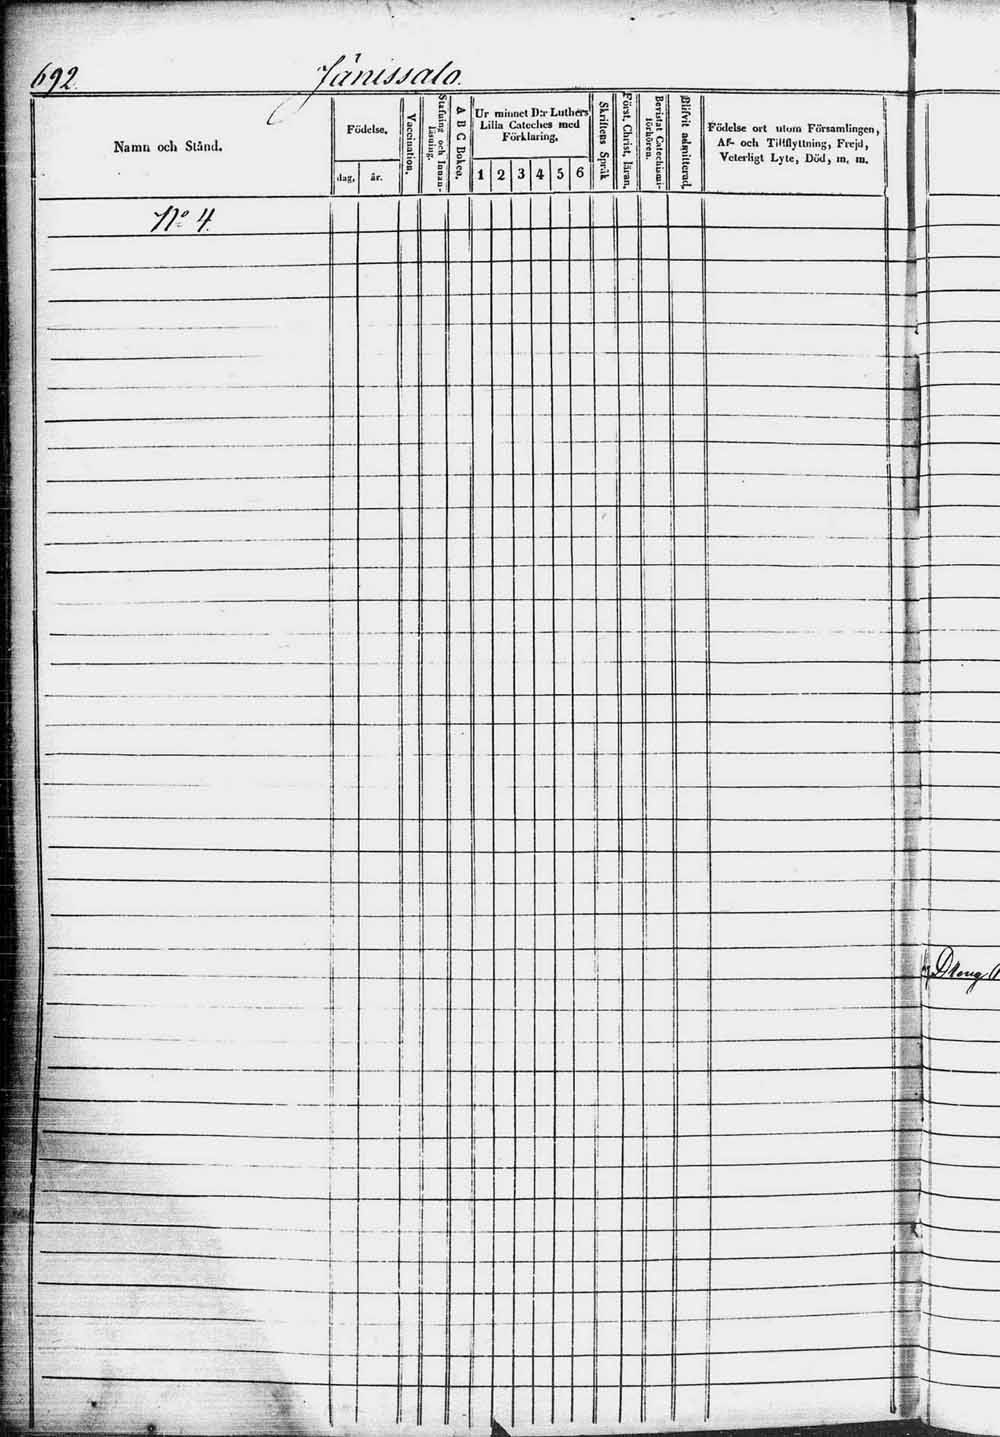 692.
Jänissalo.
Namn och Stånd.
Födelse.
dag.
år.
Vaccination.
Stafning och Innan-
läsning.
A B C Boken.
Ur minnet D:r Luthers
Lilla Cateches med
Förklaring.
1 2 3 4 5 6
Skriftens Språk
Först. Christ. läran.
Bevistat Catechismi-
förhören.
Blifvit admitterad.
Födelse ort utom Församlingen,
Af- och Tillflyttning, Frejd,
Veterligt Lyte, Död, m. m.
No 4.
Dreng